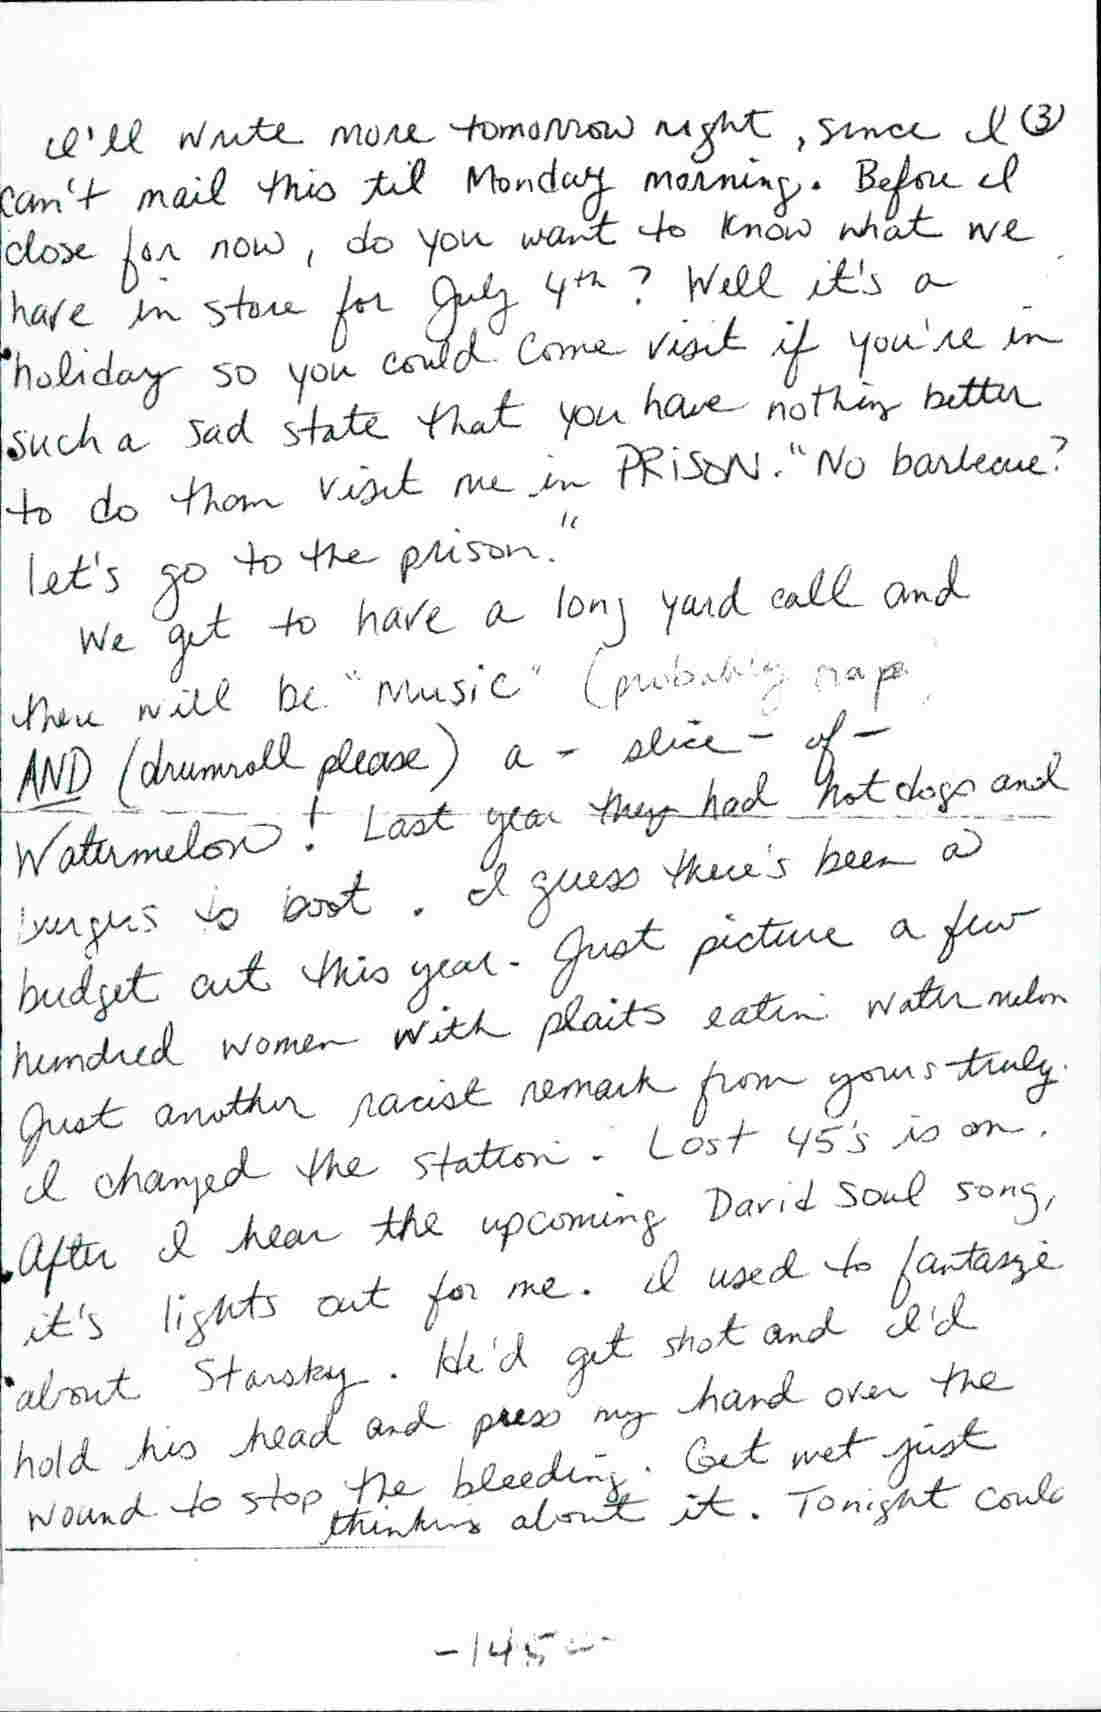 I'll write more tomorrow night, since I (3)
can't mail this til Monday morning. Before I
close for now, do you want to know what we
have in store for July 4th? Well it's a
holiday so you could come visit if you're in
such a sad state that you have nothing better
to do than visit me in PRISON. "No barbecue?
let's go to the prison."
We get to have a long yard call and
there will be "Music" (probably rap)
AND (drumroll please) a - slice - of -
Watermelon! Last year they had hot dogs and
burgers to boot. I guess there's been a
budget cut this year. Just picture a few
hundred women with plaits eatin watermelon
Just another racist remark from yours truly.
I changed the station. Lost 45's is on.
After I hear the upcoming David Soul song,
it's lights out for me. I used to fantasize
about Starsky. He'd get shot and I'd
hold his head and press my hand over the
wound to stop the bleeding. Get wet just
thinking about it. Tonight could
-145-